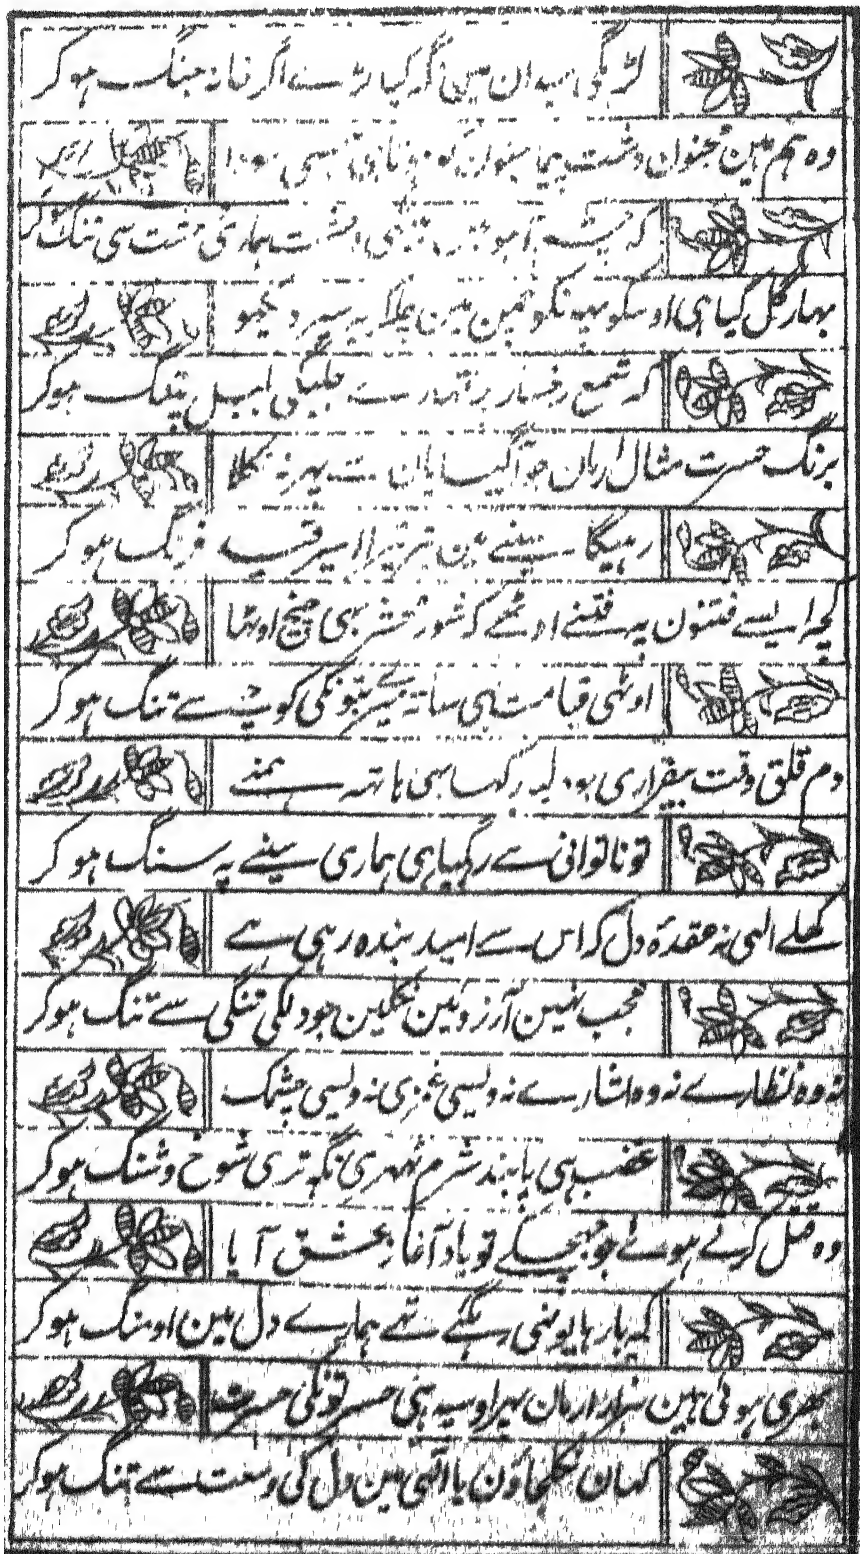 لڑیگی میدان مین نگہ کیا لڑے اگر خانہ جنگ ہو کر
وہ ہم ہین مجنون دشت پیما
کہ ہماری وحشت سی تنگ ہو کر
بہار گل کیا ہی اوسکو پھینکو چمن مین چلکر یہ سیر دیکھو
کہ شمع رخسار پر تمہارے جلیگی بلبل پتنگ ہو کر
برنگ حسرت مثال ارمان جو آگیا یان سے پھر نہ نکلا
رہیگا سینے مین تیر تیرا اسیر قید فرنگ ہو کر
کچہ ایسے فتنون پہ فتنے اوٹھے کہ شور محشر بھی چیخ اوٹھا
اوٹھی قیامت بھی ساتہ میرے بتونکی کوچے سے تنگ ہو کر
دم قلق وقت بیقراری جو دلپہ رکھا بھی ہاتہ ہمنے
تو ناتوانی سے رکھیا ہی ہماری سینے پہ سنگ ہو کر
کھلے الٰہی نہ عقدۂ دل کہ اس سے امید بندہ رہی ہے
عجب نہین آرزوئین نکلین جو دلکی تنگی سے تنگ ہو کر
نہ وہ نظارے نہ وہ اشارے نہ ویسی غمزی نہ ویسی چشمک
غضب ہی پابند شرم ٹھہری نگہ تری شوخ و شنگ ہو کر
وہ قتل کرتے ہوئے جو جھجکے تو یاد آغاز عشق آیا
کہ بارہا یونہی رہگئے تھے ہمارے دل مین اومنگ ہو کر
بھری ہوئی ہین ہزار ارمان پھر اوسپہ ہی حسرتونکی حسرت
کہان نکلجاؤن یا الٰہی مین دل کی وسعت سے تنگ ہو کر